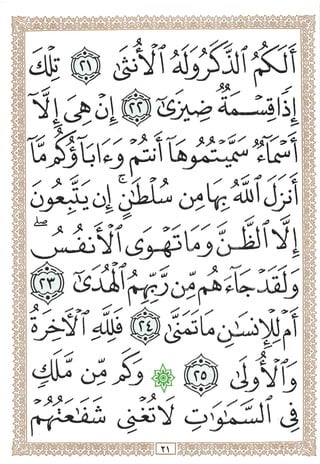 أَلَكُمُ ٱلذَّكَرُ وَلَهُ ٱلْأُنثَىٰ ٢١ تِلْكَ
إِذًا قِسْمَةٌ ضِيزَىٰٓ ٢٢ إِنْ هِىَ إِلَّآ
أَسْمَآءٌ سَمَّيْتُمُوهَآ أَنتُمْ وَءَابَآؤُكُم مَّآ
أَنزَلَ ٱللَّهُ بِهَا مِن سُلْطَٰنٍ ۚ إِن يَتَّبِعُونَ
إِلَّا ٱلظَّنَّ وَمَا تَهْوَى ٱلْأَنفُسُ ۖ
وَلَقَدْ جَآءَهُم مِّن رَّبِّهِمُ ٱلْهُدَىٰٓ ٢٣
أَمْ لِلْإِنسَٰنِ مَا تَمَنَّىٰ ٢٤ فَلِلَّهِ ٱلْءَاخِرَةُ
وَٱلْأُولَىٰ ٢٥ ۞ وَكَم مِّن مَّلَكٍ
فِى ٱلسَّمَٰوَٰتِ لَا تُغْنِى شَفَٰعَتُهُمْ
٢١